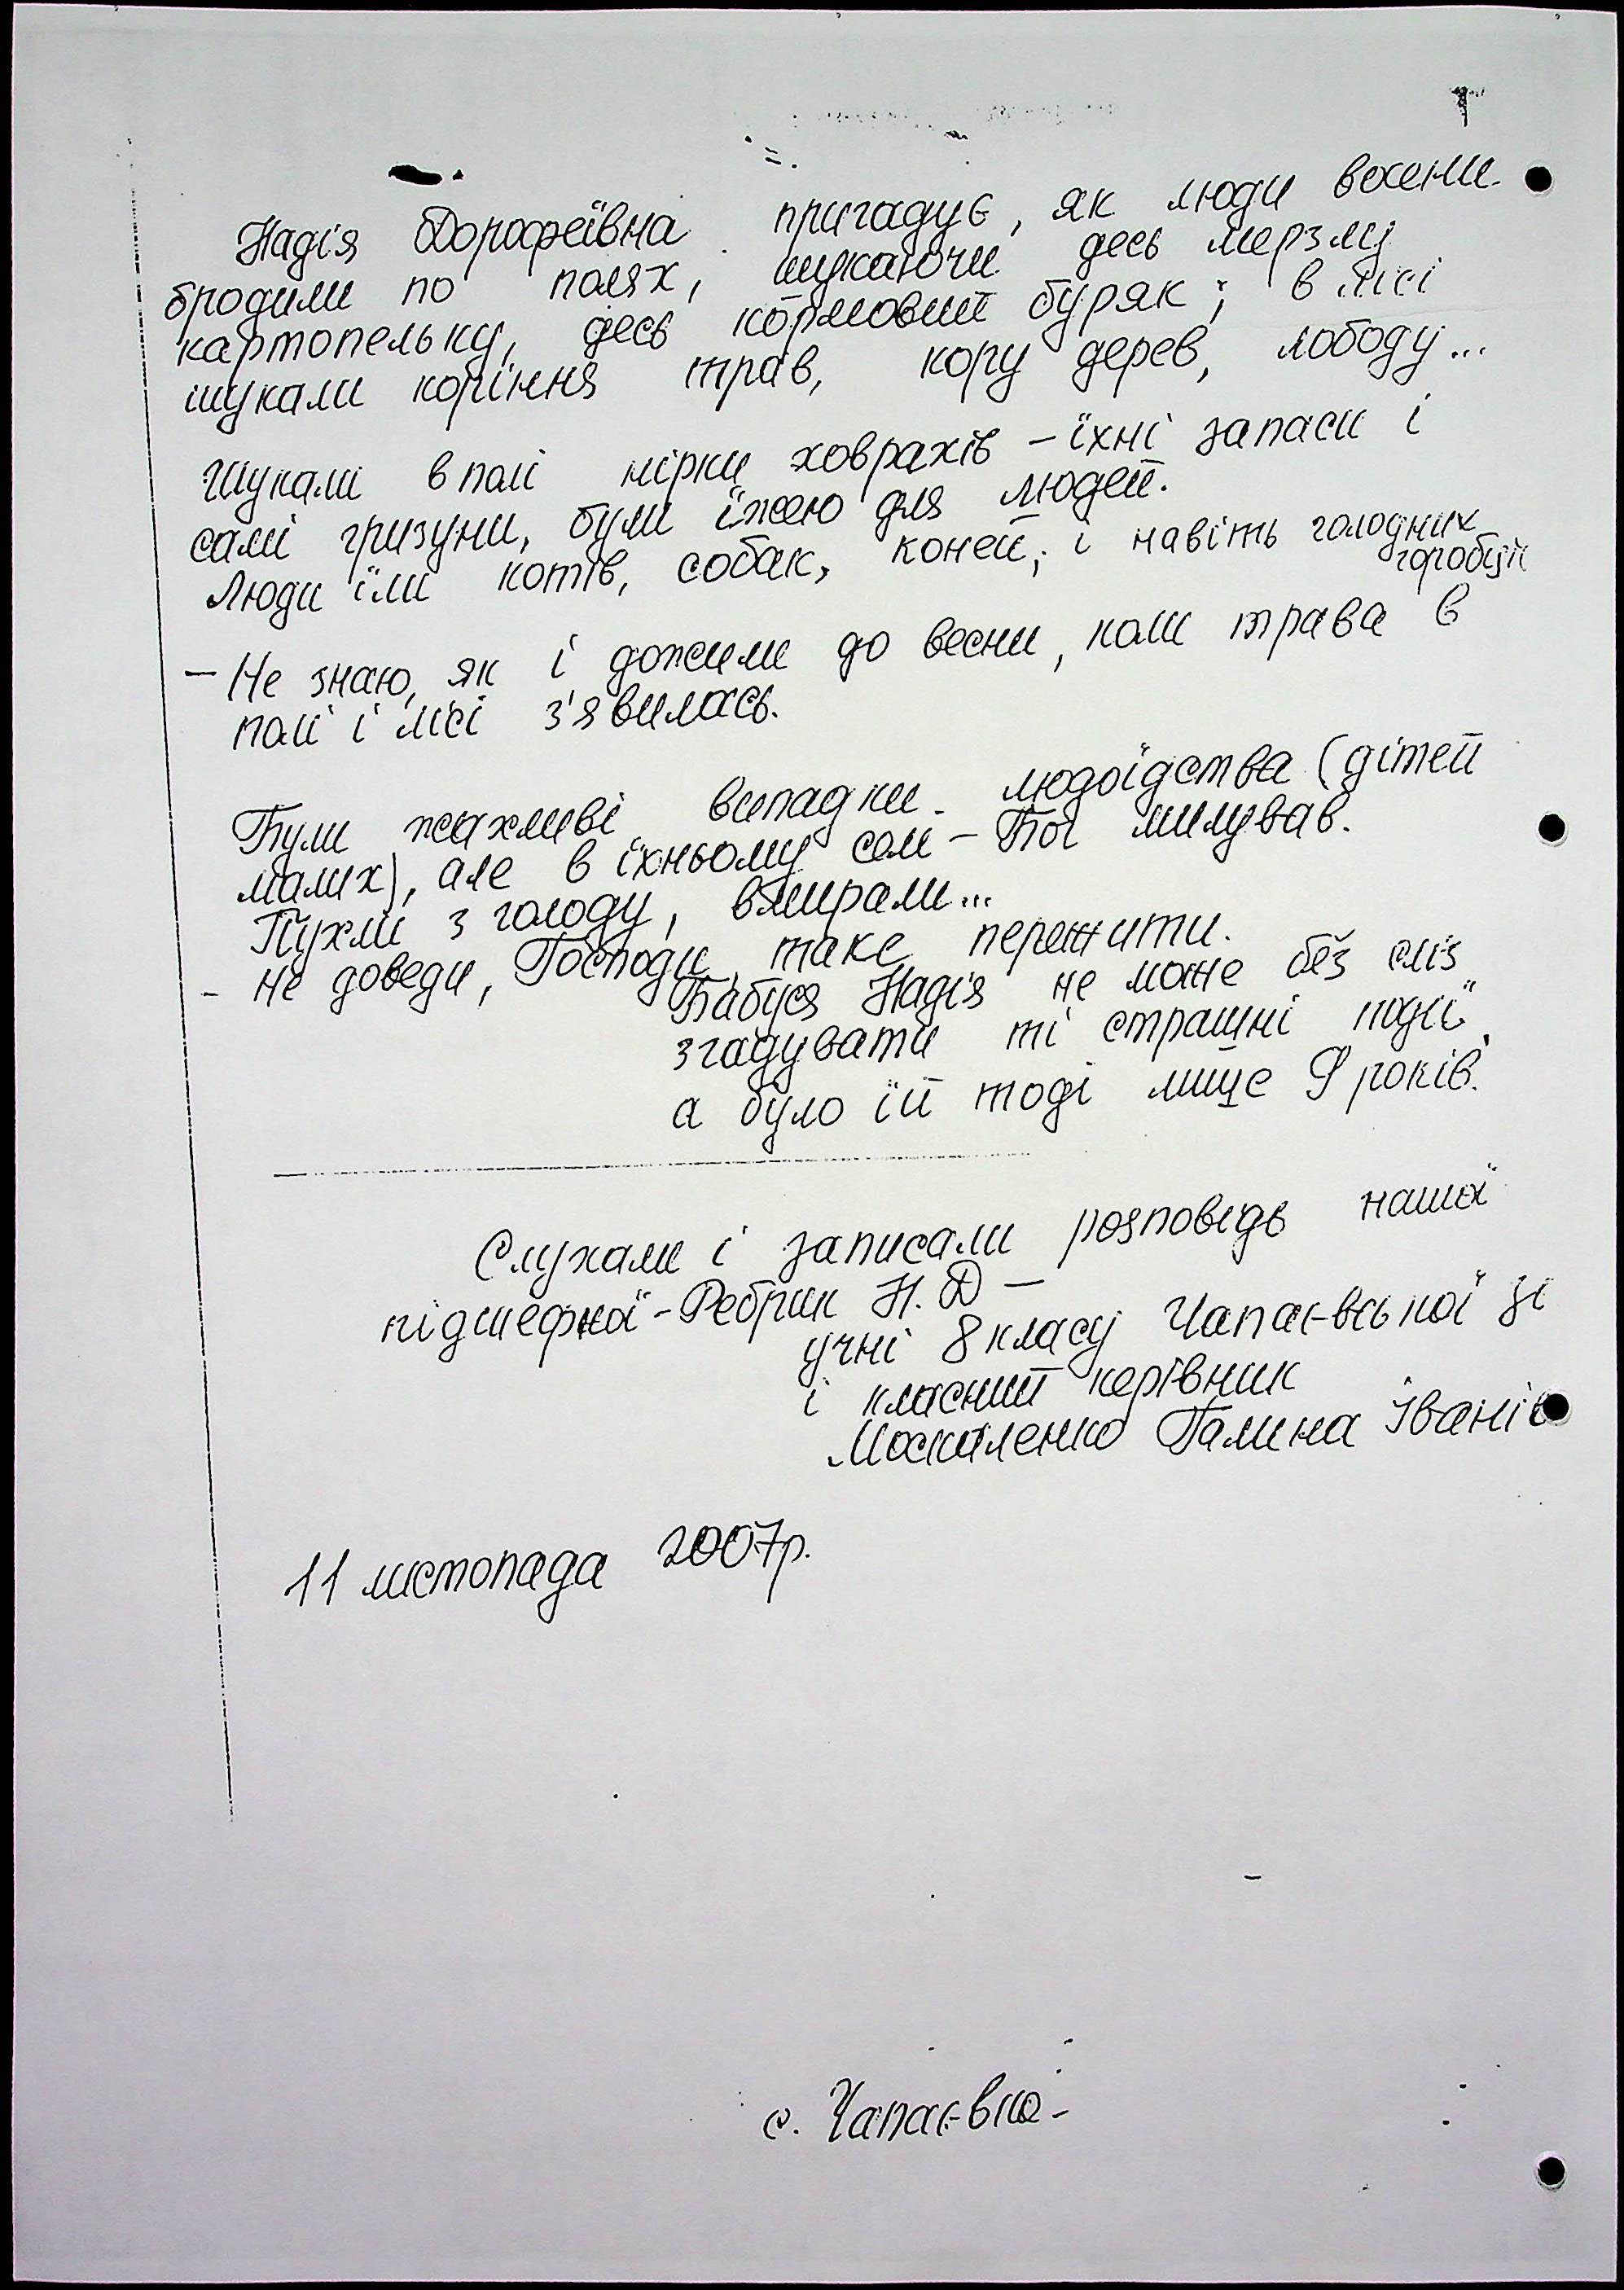 Надія Дорофеївна пригадує, як люди восени
бродили по полях, шукаючи десь мерзлу
картопельку, десь кормовий буряк; в лісі
шукали коріння трав, кору дерев, лободу...
Шукали в полі нірки ховрахів – їхні запаси і
самі гризуни, були їжею для людей.
Люди їли котів, собак, коней, і навіть голодних
горобців
– Не знаю, як і дожили до весни, коли трава в
полі і лісі з'явилась.
Були жахливі випадки людоїдства (дітей
малих), але в їхньому селі – Бог милував.
Пухли з голоду, вмирали...
- Не доведи, Господи, таке пережити.
Бабуся Надія не може без сліз
згадувати ті страшні події,
а було їй тоді лише 9 років.
Слухали і записали розповідь нашої
підшефної - Ребрик Н. Д –
учні 8 класу Чапаєвської
і класний керівник
Галина Іванів
11 листопада 2007р.
с. Чапаєвка